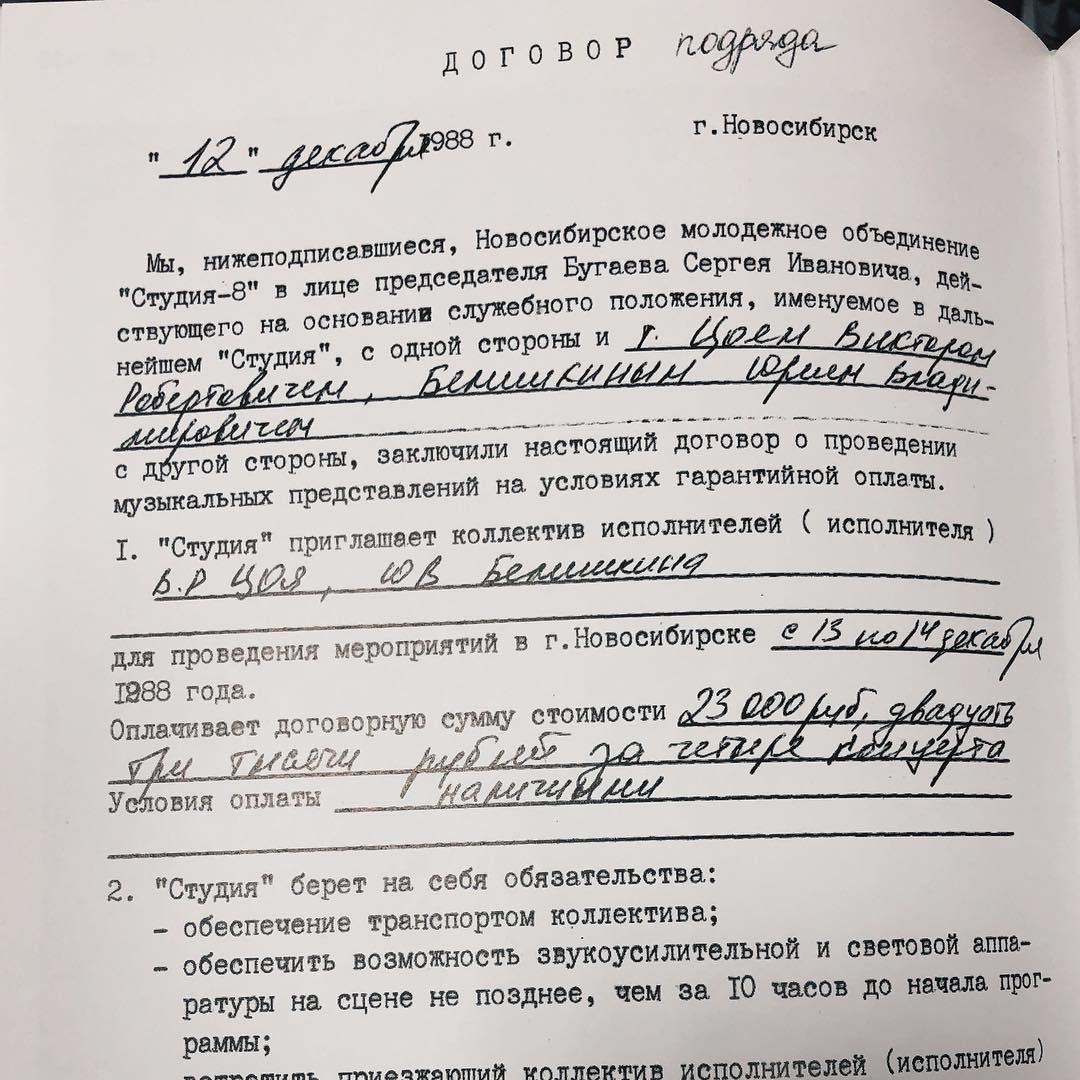 ДОГОВОР подряда
"12" декабря 1988 г. г.Новосибирск
Мы, нижеподписавшиеся, Новосибирское молодежное объединение
"Студия-8" в лице председателя Бугаева Сергея Ивановича, дей-
ствующего на основании служебного положения, именуемое в даль-
нейшем "Студия", с одной стороны и г. Цоем Виктором
Робертовичем, Белишкиным Юрием Влади-
мировичем
с другой стороны, заключили настоящий договор о проведении
музыкальных представлений на условиях гарантийной оплаты.
I. "Студия" приглашает коллектив исполнителей ( исполнителя )
В.Р ЦОЯ, Ю В Белишкина
для проведения мероприятий в г.Новосибирске с 13 по 14 декабря
1988 года.
Оплачивает договорную сумму стоимости 23 000 руб, двадцать
три тысячи рублей за четыре концерта
Условия оплаты наличными
2. "Студия" берет на себя обязательства:
- обеспечение транспортом коллектива;
- обеспечить возможность звукоусилительной и световой аппа-
ратуры на сцене не позднее, чем за 10 часов до начала прог-
раммы;
встретить приезжающий коллектив исполнителей (исполнителя)